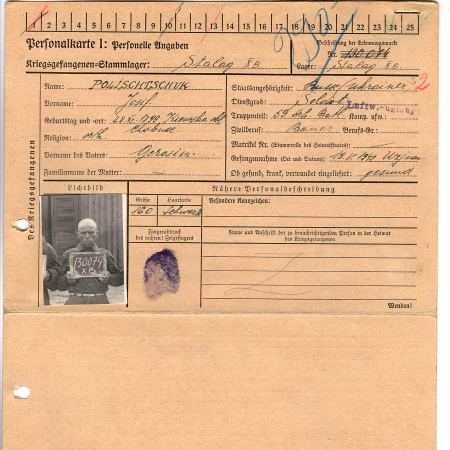 1 2 3 4 5 6 7 8 9 10 11 12 13 14 15 16 17 18 19 20 21 22 23 24 25
Personalkarte I: Personelle Angaben
Kriegsgefangenen-Stammlager: Stalag 8B
Beschriftung der Erkennungsmarke
Nr. 130074
Lager: Stalag 8B
Des Kriegsgefangenen
Name: POLISCHTSCHUK
Vorname: Josef
Geburtstag und -ort:
Religion: orth.
Vorname des Vaters: Gerasim
Familienname der Mutter:
Staatsangehörigkeit:
Dienstgrad: Soldat
Truppenteil: 59 Komp. usw.:
Zivilberuf: Bauer Berufs-Gr.:
Matrikel Nr. (Stammrolle des Heimatstaates):
Gefangennahme (Ort und Datum):
Ob gesund, krank, verwundet eingeliefert: gesund
2
Lichtbild
130074
Nähere Personalbeschreibung
Größe Haarfarbe
160 Schwarz
Fingerabdruck
des rechten! Zeigefingers
Besondere Kennzeichen:
Name und Anschrift der zu benachrichtigenden Person in der Heimat
des Kriegsgefangenen
Wenden!